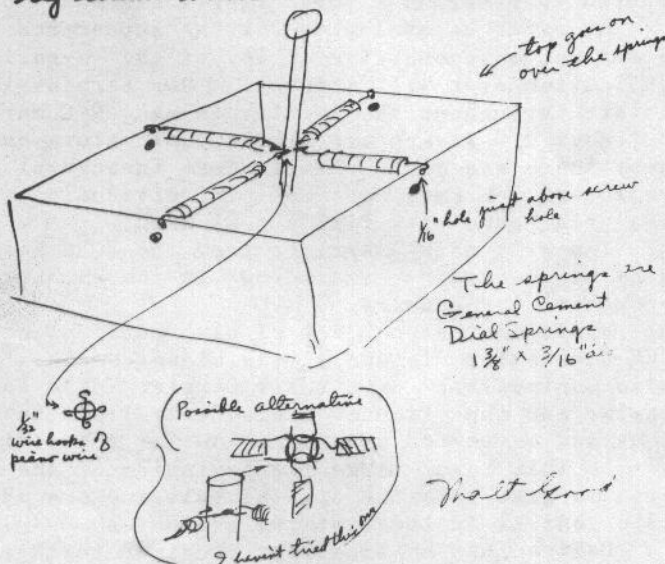 top goes on
over the springs
1/16" hole just above screw
hole
The springs are
General Cement
Dial Springs
1 3/8" x 3/16" dia
1/32"
wire hooks of
piano wire
Possible alternative
I haven't tried this one
Walt Good